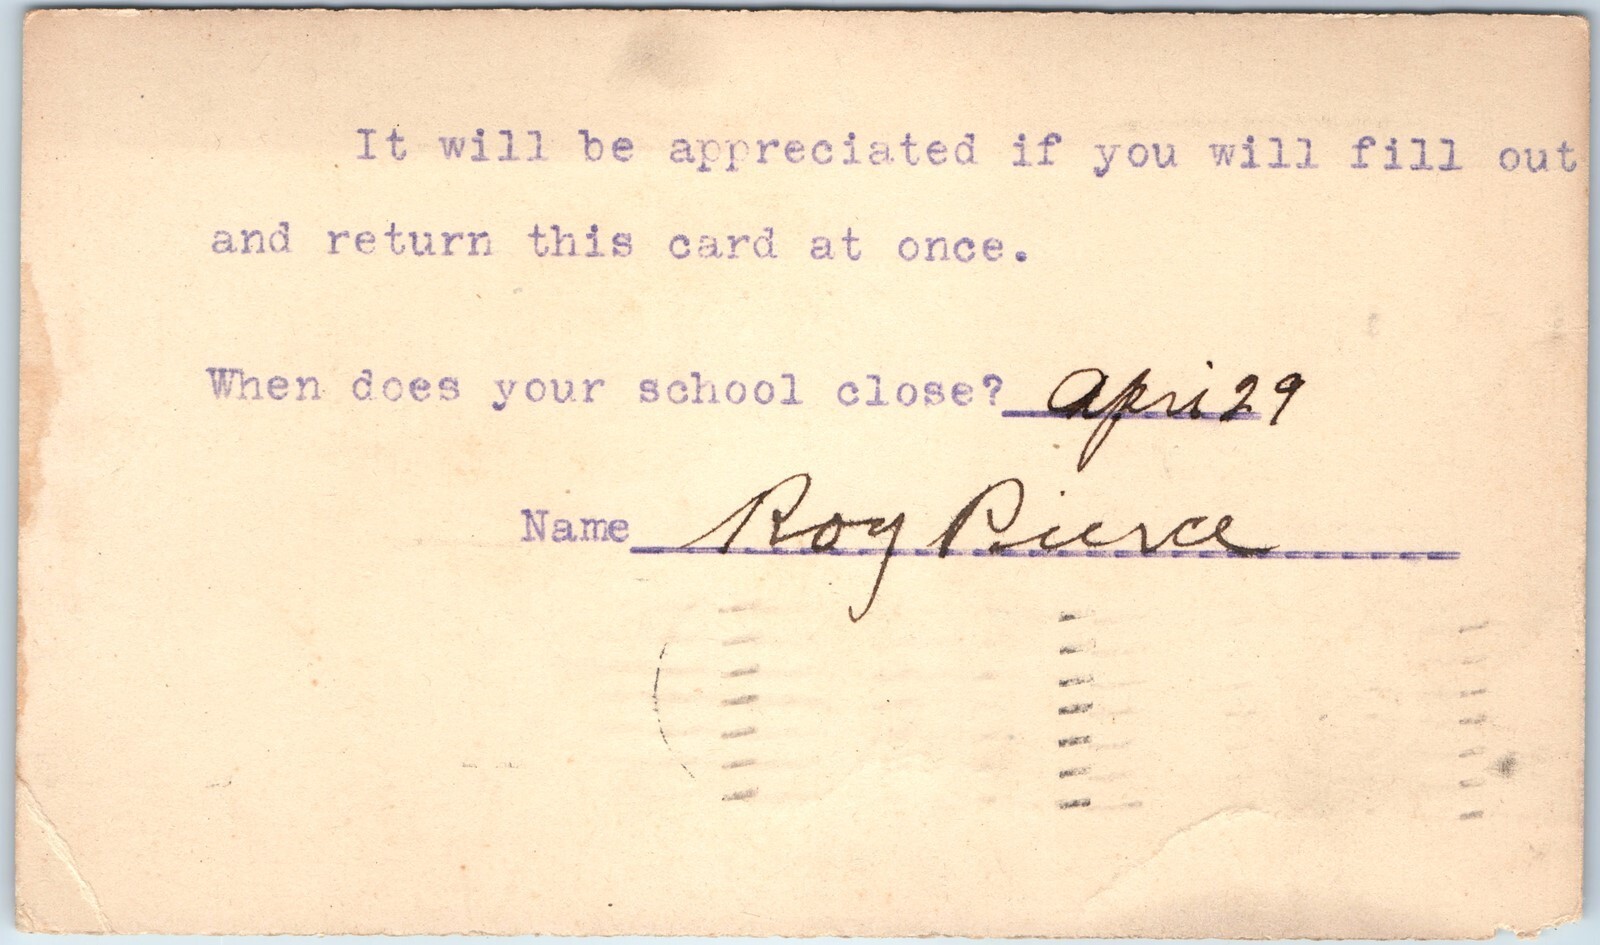 It will be appreciated if you will fill out
and return this card at once.
When does your school close? Apri 29
Name Roy Pierce